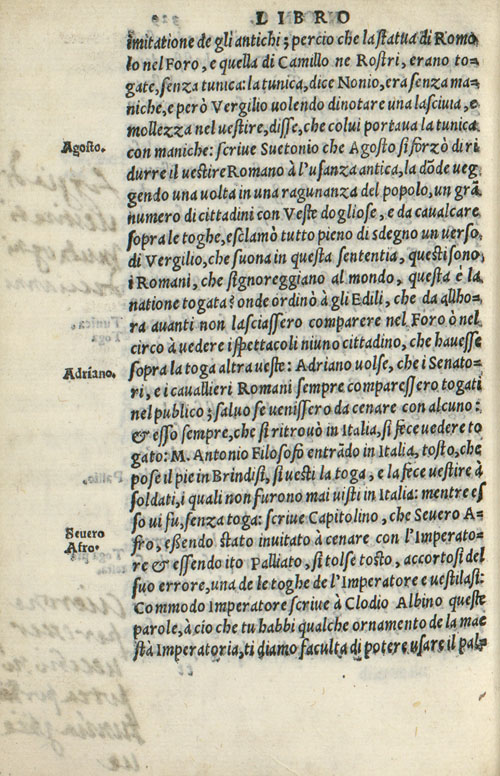 LIBRO
imitatione de gli antichi; percio che la statua di Romo
lo nel Foro, e quella di Camillo ne Rostri, erano to=
gate, senza tunica: la tunica, dice Nonio, era senza ma=
niche, e però Vergilio uolendo dinotare una lasciuia, e
mollezza nel uestire, disse, che colui portaua la tunica
Agosto.
con maniche: scriue Suetonio che Agosto si sforzò di ri
durre il uestire Romano à l'usanza antica, la dōde ueg
gendo una uolta in una ragunanza del popolo, un grā
numero di cittadini con Veste dogliose, e da caualcare
sopra le toghe, esclamò tutto pieno di sdegno un uerso
di Vergilio, che suona in questa sententia, questi sono
i Romani, che signoreggiano al mondo, questa è la
natione togata? onde ordinò à gli Edili, che da allho=
ra auanti non lasciassero comparere nel Foro ò nel
circo à uedere i spettacoli niuno cittadino, che hauesse
Adriano.
sopra la toga altra ueste: Adriano uolse, che i Senato=
ri, e i cauallieri Romani sempre comparessero togati
nel publico; saluo se uenissero da cenare con alcuno:
& esso sempre, che si ritrouò in Italia, si fece uedere to
gato: M. Antonio Filosofo entrādo in Italia, tosto, che
pose il pie in Brindisi, si uesti la toga, e la fece uestire à
soldati, i quali non furono mai uisti in Italia: mentre es
Seuero
Afro.
so ui fu, senza toga: scriue Capitolino, che Seuero A=
fro, essendo stato inuitato à cenare con l'Imperato=
re & essendo ito Palliato, si tolse tosto, accortosi del
suo errore, una de le toghe de l'Imperatore e uestilasi:
Commodo Imperatore scriue à Clodio Albino queste
parole, à cio che tu habbi qualche ornamento de la mae
stà Imperatoria, ti diamo faculta di potere usare il pal=